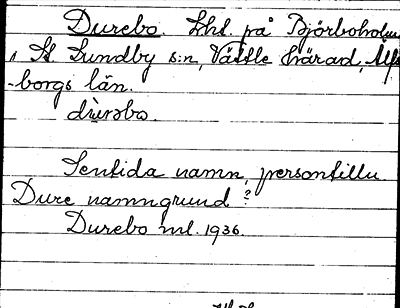 Durebo. Lht. på Björboholm
i St Lundby s:n, Vättle härad, Älfs
-borgs län.
dùrəbo.
Sentida namn, persontilln
Dure namngrund?
Durebo ml. 1936.